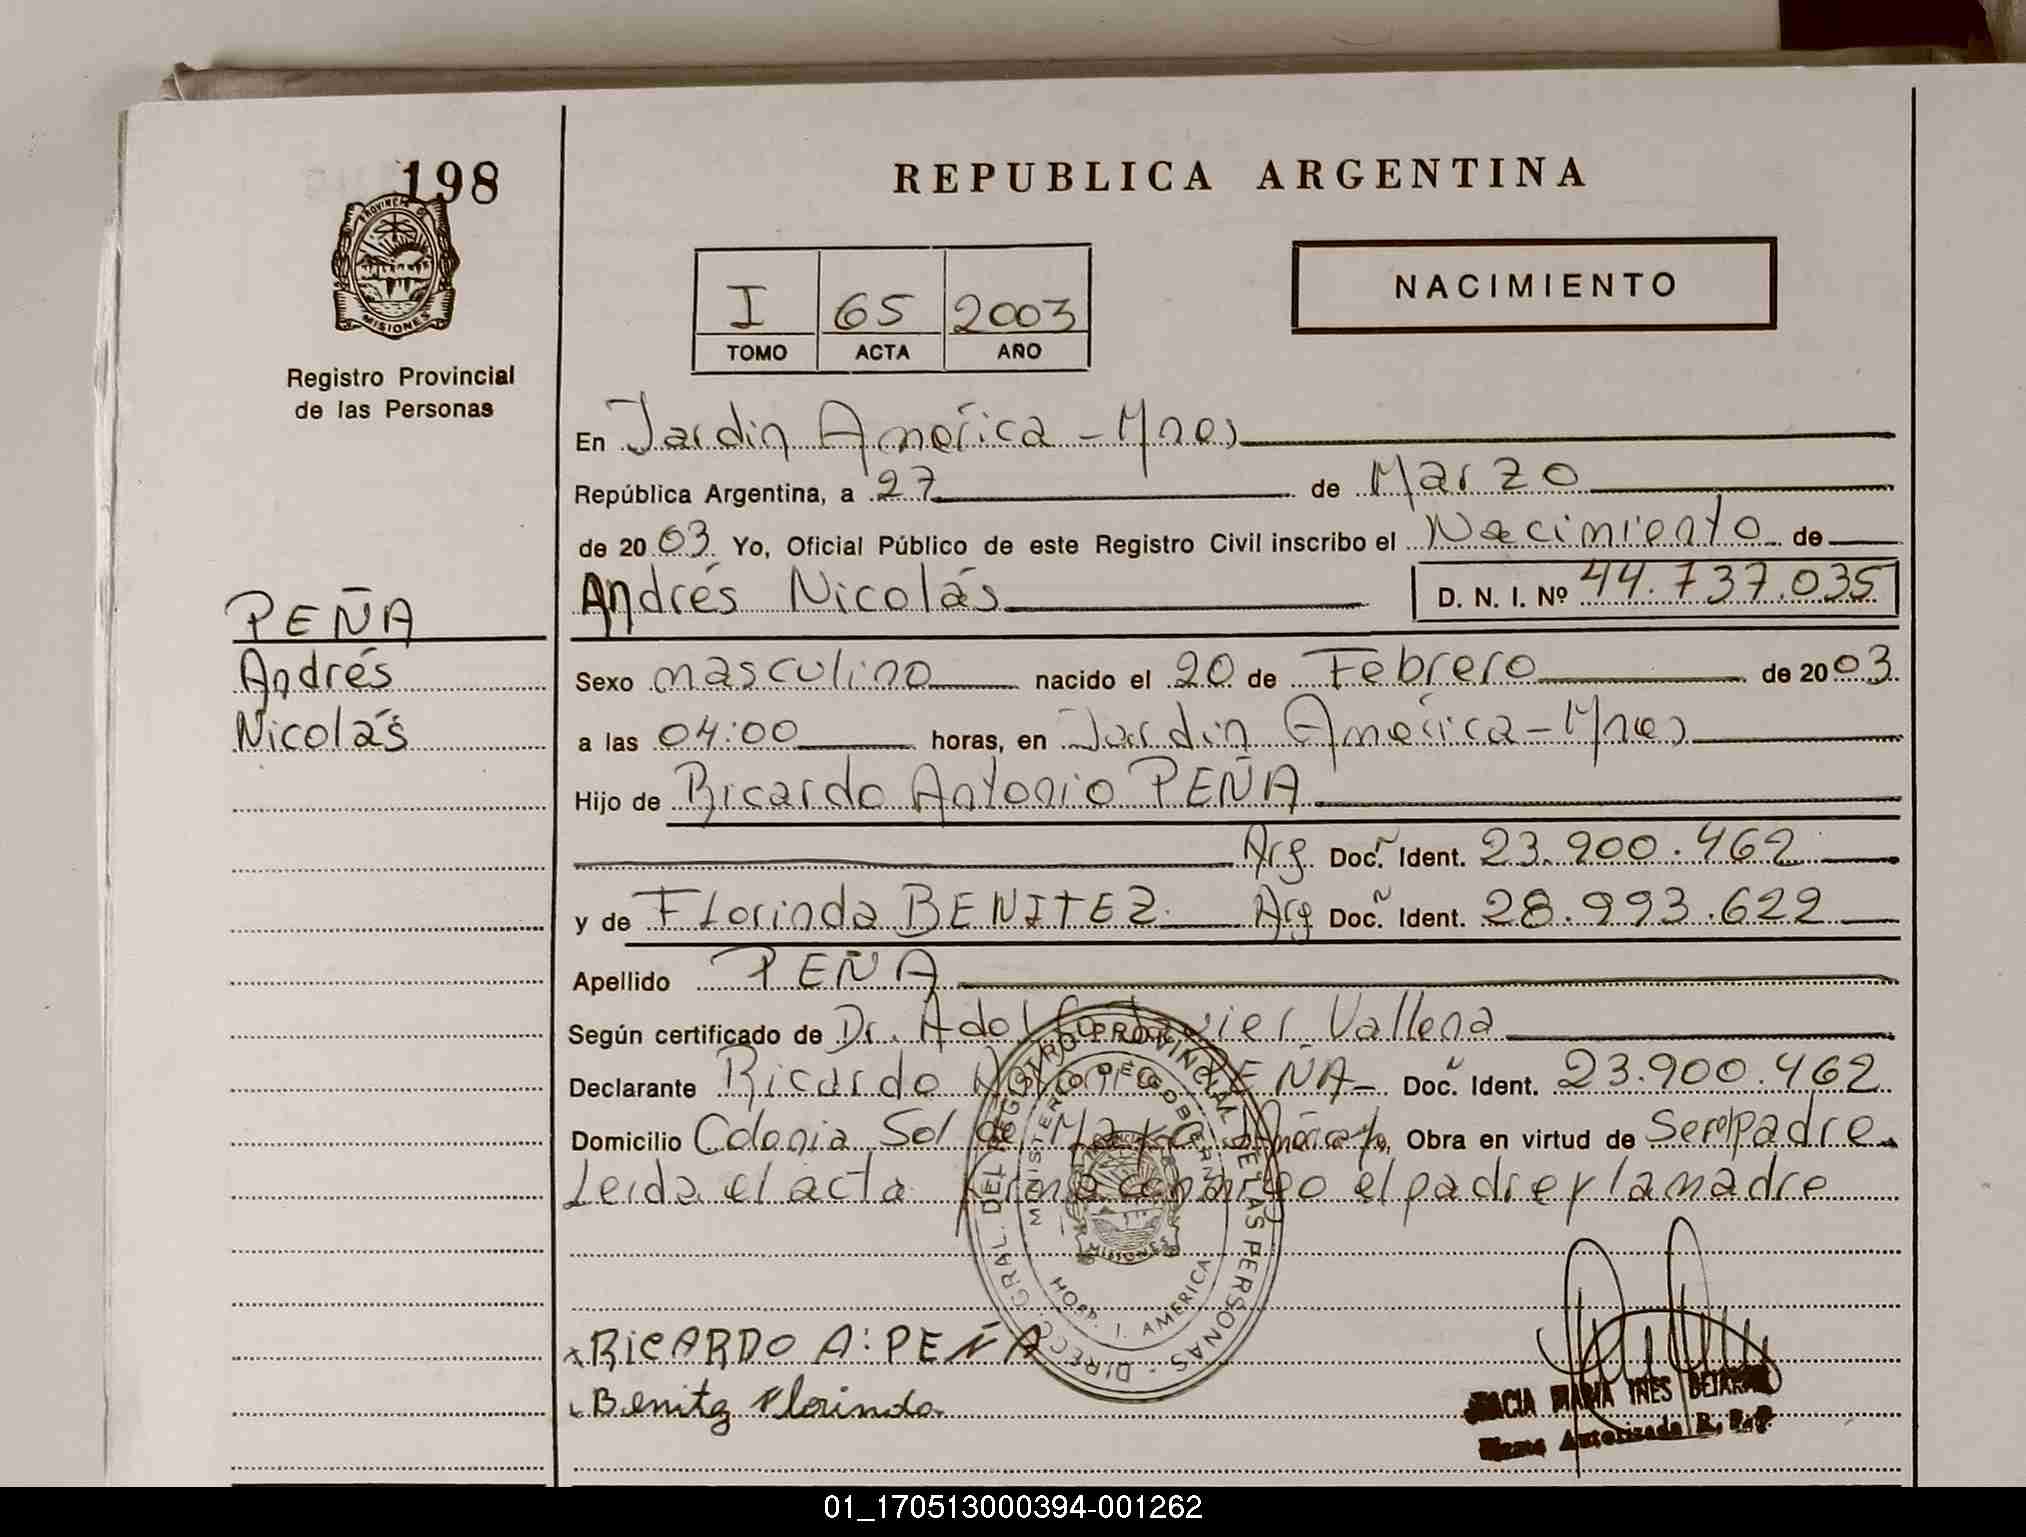 198
PROVINCIA DE
MISIONES
Registro Provincial
de las Personas
PEÑA
Andrés
Nicolás
REPUBLICA ARGENTINA
I 65 2003
TOMO ACTA AÑO
NACIMIENTO
En Jardin América - Mnes
República Argentina, a 27 de Marzo
de 2003 Yo, Oficial Público de este Registro Civil inscribo el Nacimiento de
Andrés Nicolás D. N. I. Nº 44.737.035
Sexo masculino nacido el 20 de Febrero de 2003
a las 04:00 horas, en Jardin América - Mnes
Hijo de Ricardo Antonio PEÑA
Arg. Doc. Ident. 23.900.462
y de Florinda BENITEZ Arg Doc. Ident. 28.993.622
Apellido PEÑA
Según certificado de Dr. Adolfo Javier Vallena
Declarante Ricardo Antonio PEÑA Doc. Ident. 23.900.462
Domicilio Colonia Sol de Mayo Obra en virtud de Ser padre
Leida el acta firma conmigo el padre y la madre
DIRECC. GRAL. DEL REGISTRO PROVINCIAL DE LAS PERSONAS
MINISTERIO DE GOBIERNO
MISIONES
HOSP. J. AMERICA
RICARDO A: PEÑA
Benitez Florinda
MARIA INES BEJARANO
Autorizada R. P. P.
01_170513000394-001262